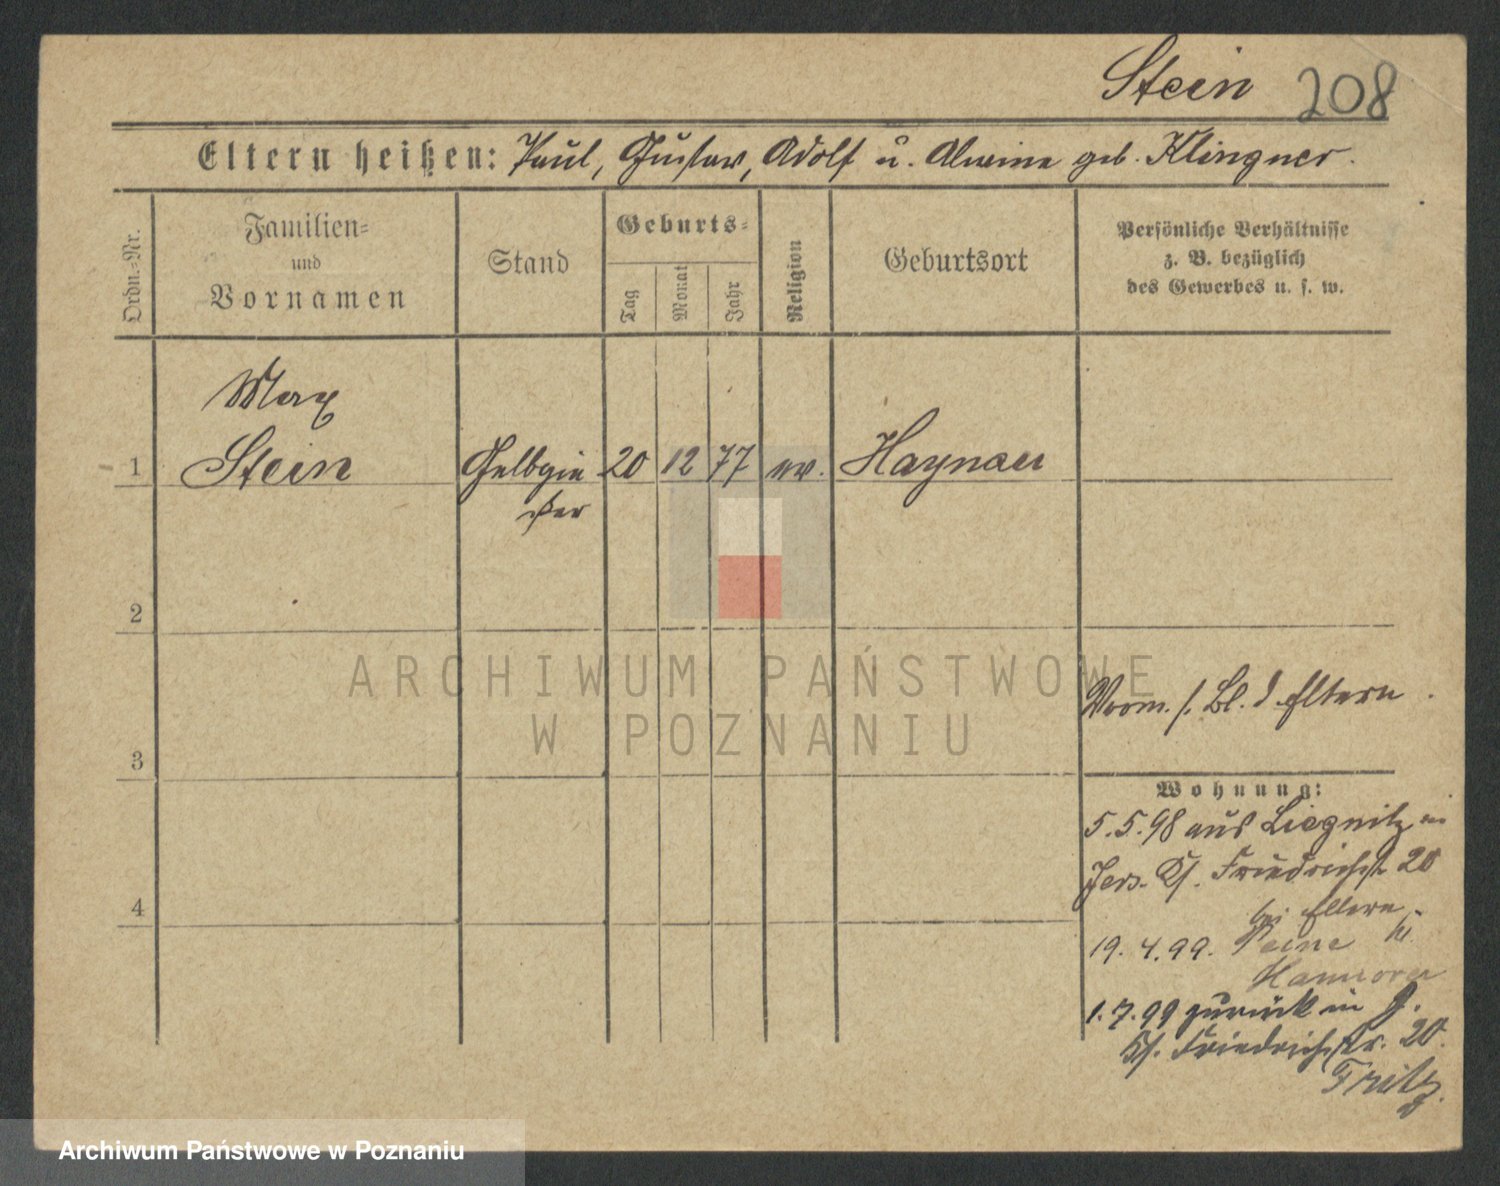 Stein 208
Eltern heißen: Paul, Gustav, Adolf u. Alwine geb. Klingner.
Ordn.-Nr.
Familien-
und
Vornamen
Stand
Geburts-
Tag
Monat
Jahr
Religion
Geburtsort
Persönliche Verhältnisse
z. B. bezüglich
des Gewerbes u. s. w.
Max
1 Stein Gelbgie 20 12 77 ev. Haynau
ßer
2
ARCHIWUM PAŃSTWOWE
W POZNANIU
Vorm. s. Bl. d Eltern
3
Wohnung:
5.5.98 aus Liegnitz in
Jers. Friedrichst 20
4
bei Eltern
19. 4.99. Peine
Hannover
1.7.99 zurück in J.
Friedrichstr. 20.
Fritz.
Archiwum Państwowe w Poznaniu